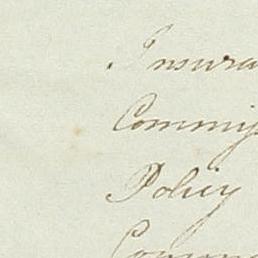 Insura
Commis
Policy
Comm